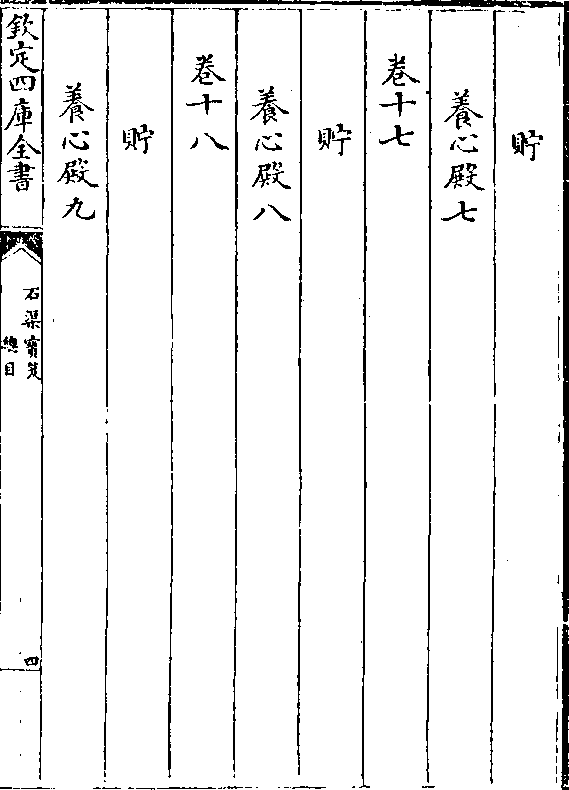 貯
養心殿七
卷十七
貯
養心殿八
卷十八
貯
養心殿九
欽定四庫全書
石渠寶笈
總目
四